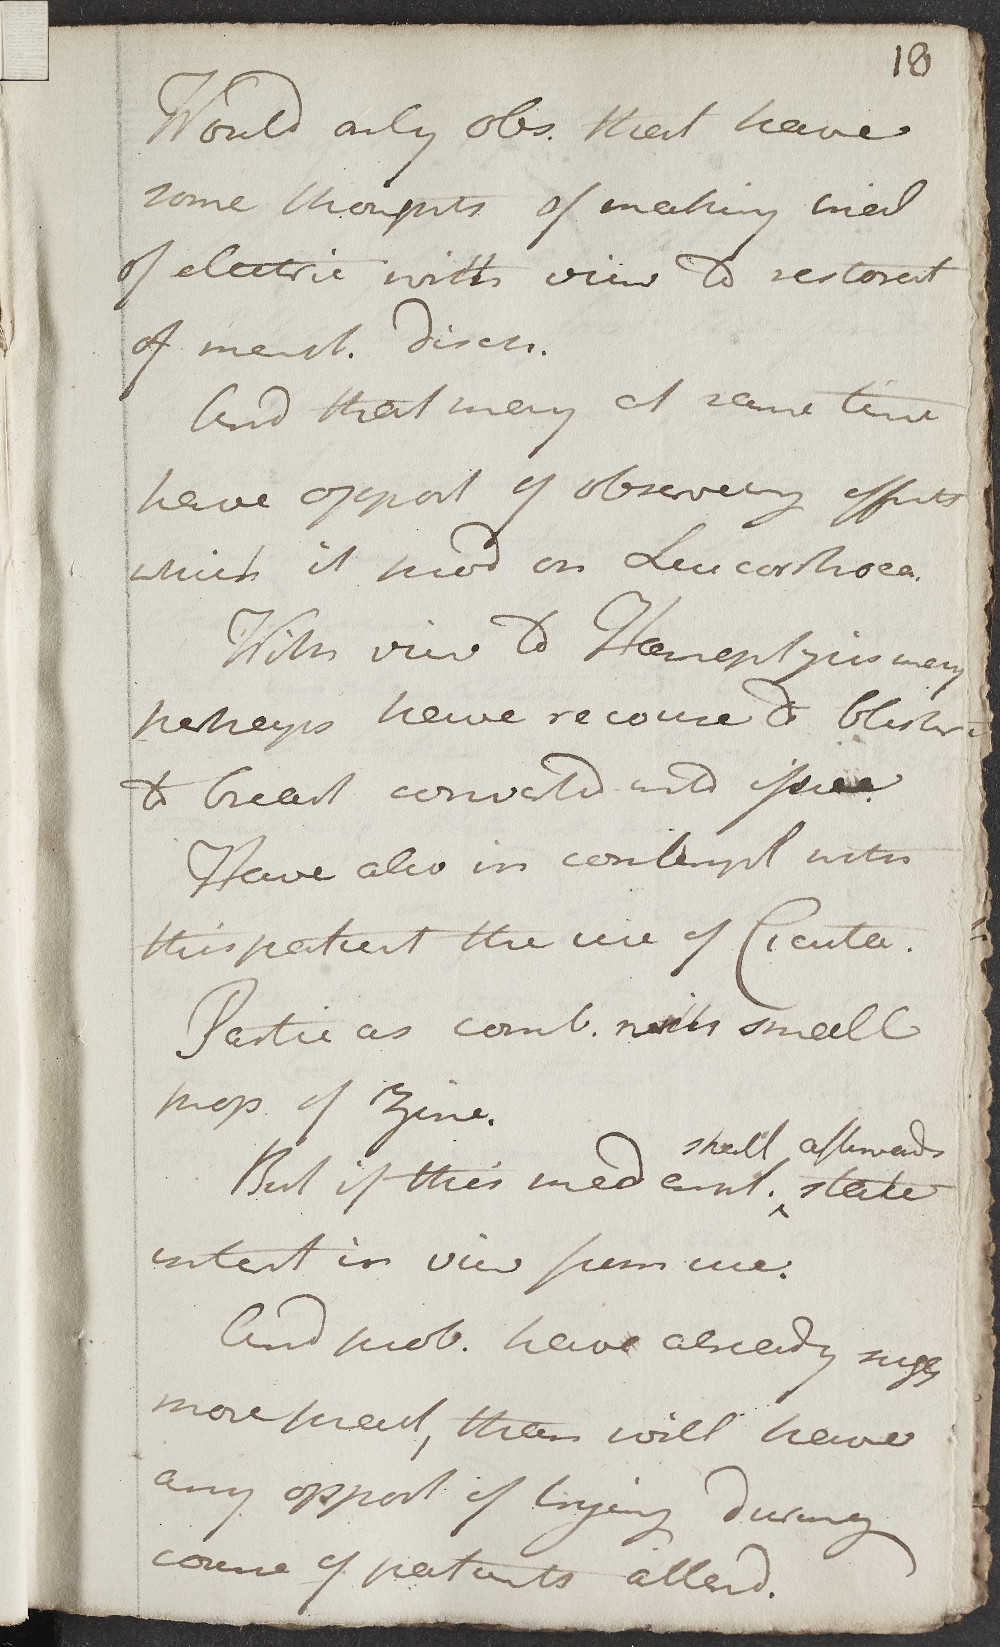 18
Would only obs. that have
some thoughts of making trial
of electric with view to restorat
of menst. disch.
And that may at same time
have opport of observing effects
which it prod on Leucorrhoea.
With view to Haemoptysis may
perhaps have recourse to blister
to breast convated into issue.
Have also in contempl with
this patient the use of Cicuta.
Partic as comb. with small
prop of Zinc.
shall afterwards
But if this med empl. ^ state
intent in view from use.
And prob. have already sugg
more pract, than will have
any opport of trying during
course of patients attend.